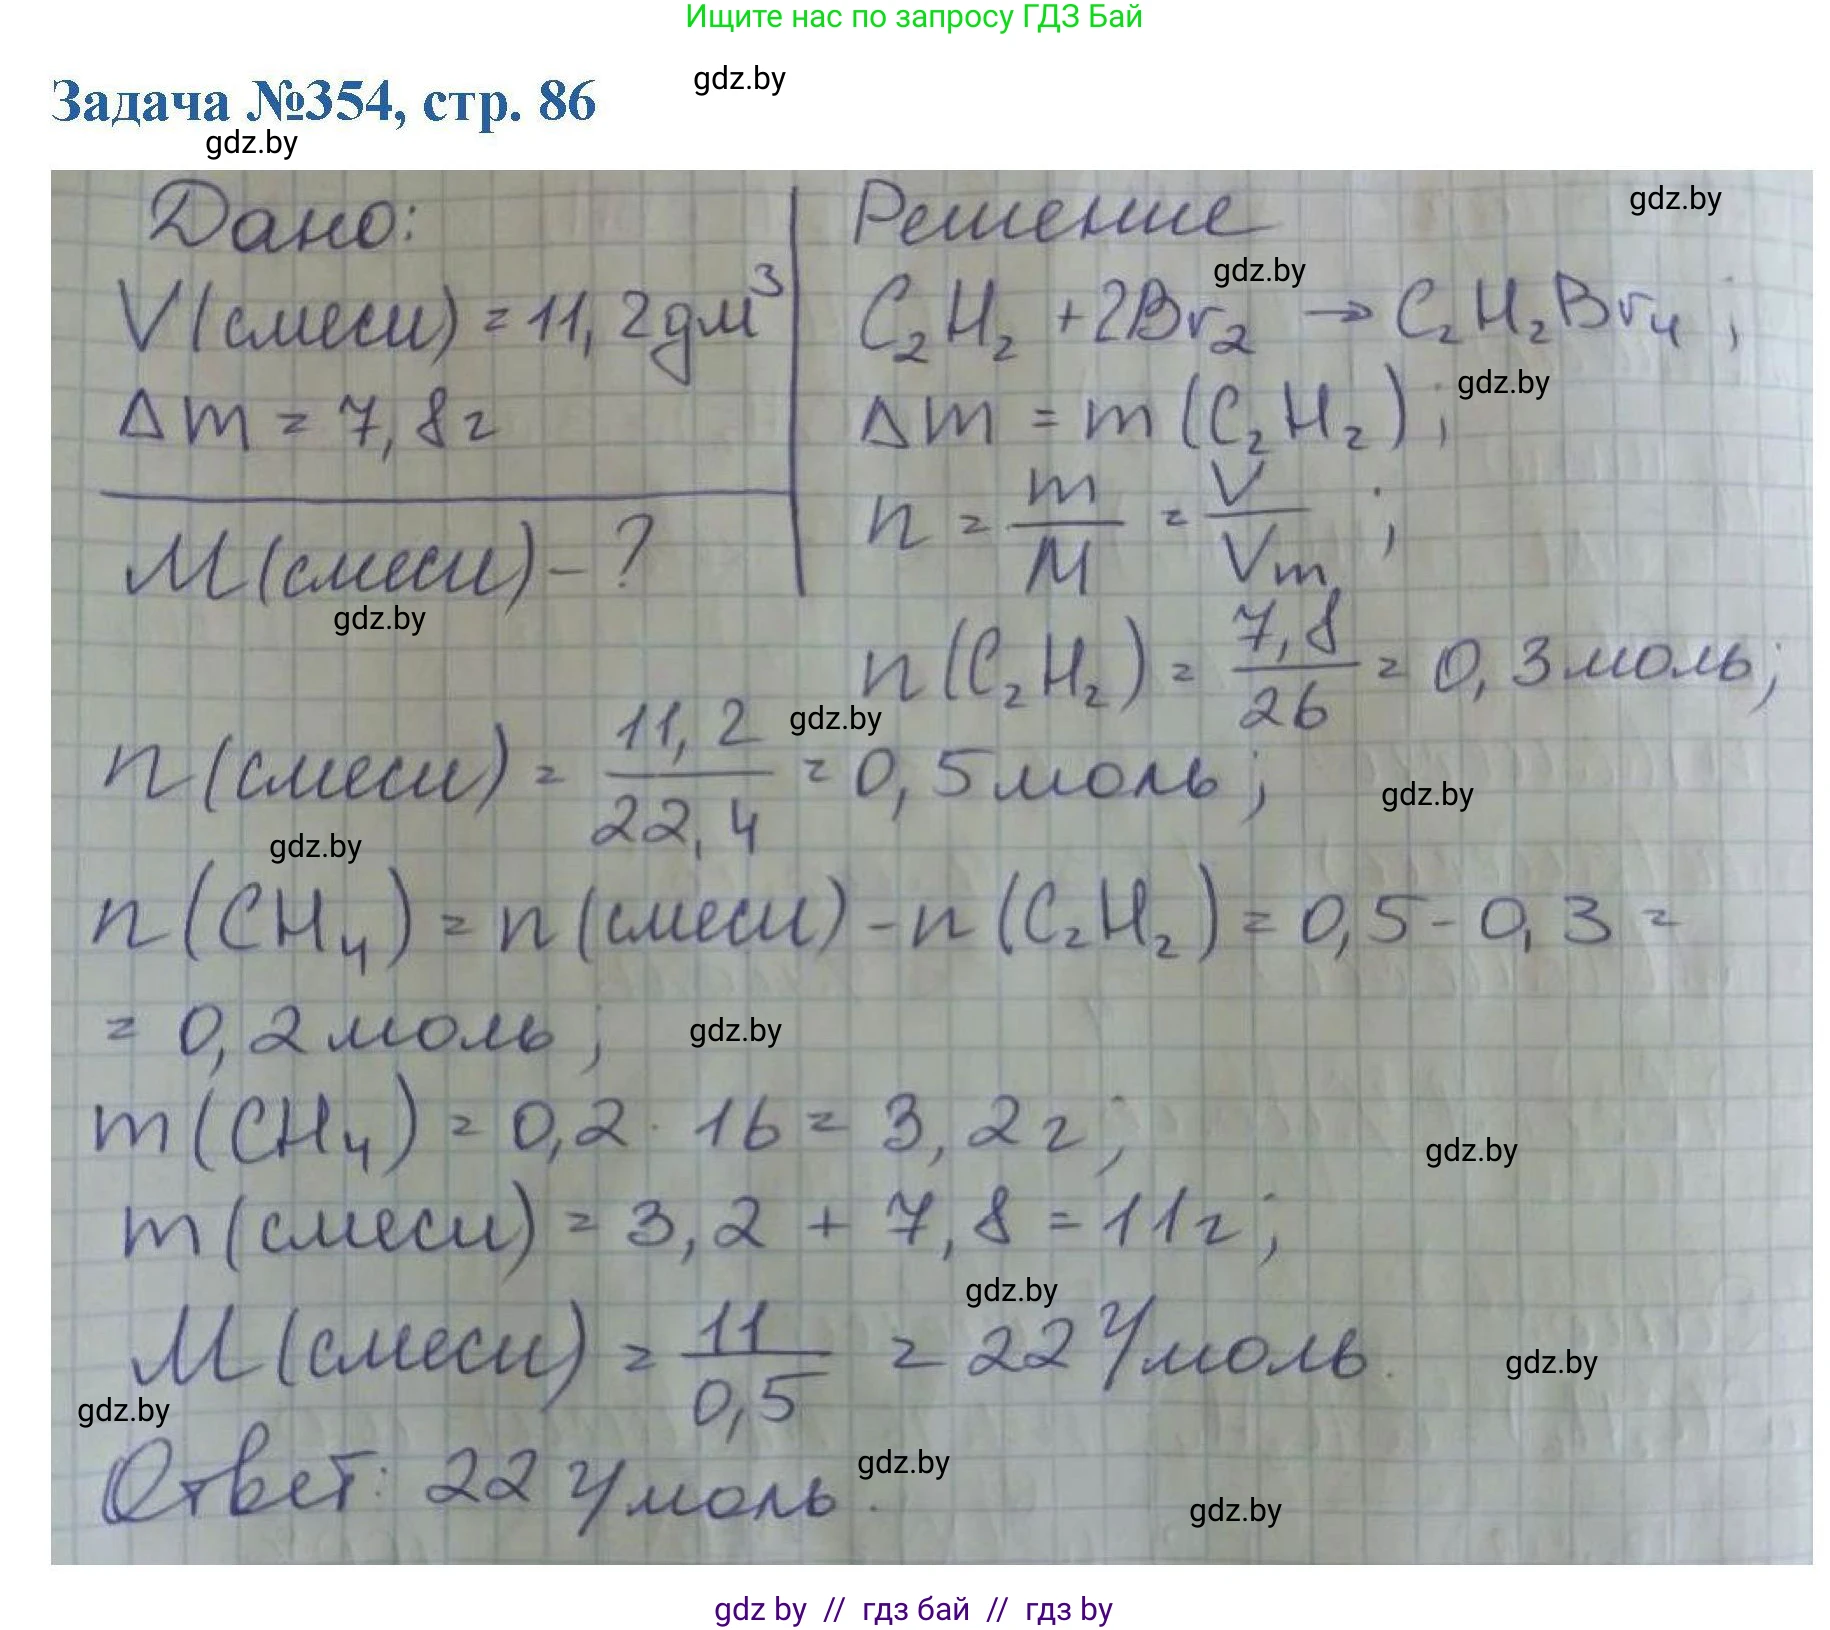 Ищите нас по запросу ГДЗ Бай
gdz.by
Задача №354, стр. 86
gdz.by
Дано:
V(смеси) = 11,2дм³
Δm = 7,8г
M(смеси) - ?
gdz.by
Решение
gdz.by
gdz.by
C₂H₂ + 2Br₂ → C₂H₂Br₄ ;
gdz.by
Δm = m (C₂H₂) ;
n = m/M = V/Vm ;
n(C₂H₂) = 7,8/26 = 0,3моль;
gdz.by
n(смеси) = 11,2/22,4 = 0,5моль ;
gdz.by
gdz.by
n(CH₄) = n(смеси) - n(C₂H₂) = 0,5 - 0,3 =
= 0,2моль ;
gdz.by
m(CH₄) = 0,2 · 16 = 3,2г ;
gdz.by
m(смеси) = 3,2 + 7,8 = 11г ;
gdz.by
M(смеси) = 11/0,5 = 22 г/моль.
gdz.by
gdz.by
Ответ: 22 г/моль.
gdz.by
gdz.by
gdz by // гдз бай // гдз by